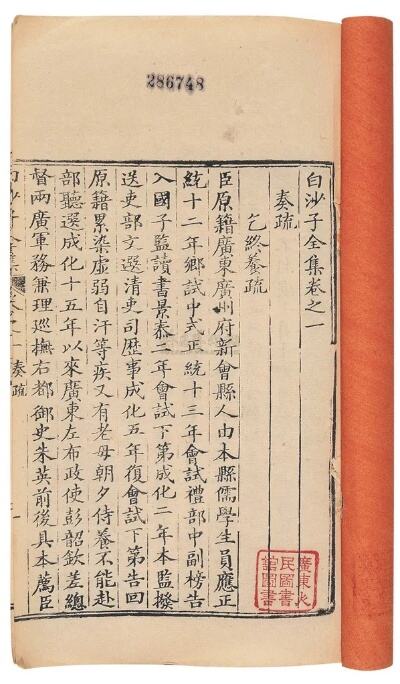 286748
白沙子全集卷之一
奏疏
乞終養疏
臣原籍廣東廣州府新會縣人由本縣儒學生員應正
統十二年鄉試中式正統十三年會試禮部中副榜告
入國子監讀書景泰二年會試下第成化二年本監撥
送吏部文選清吏司歷事成化五年復會試下第告回
原籍累染虛弱自汗等疾又有老母朝夕侍養不能赴
部聽選成化十五年以來廣東左布政使彭韶欽差總
督兩廣軍務兼理巡撫右都御史朱英前後具本薦臣
白沙子全集 卷之一 奏疏
廣東人
民圖書
館圖書